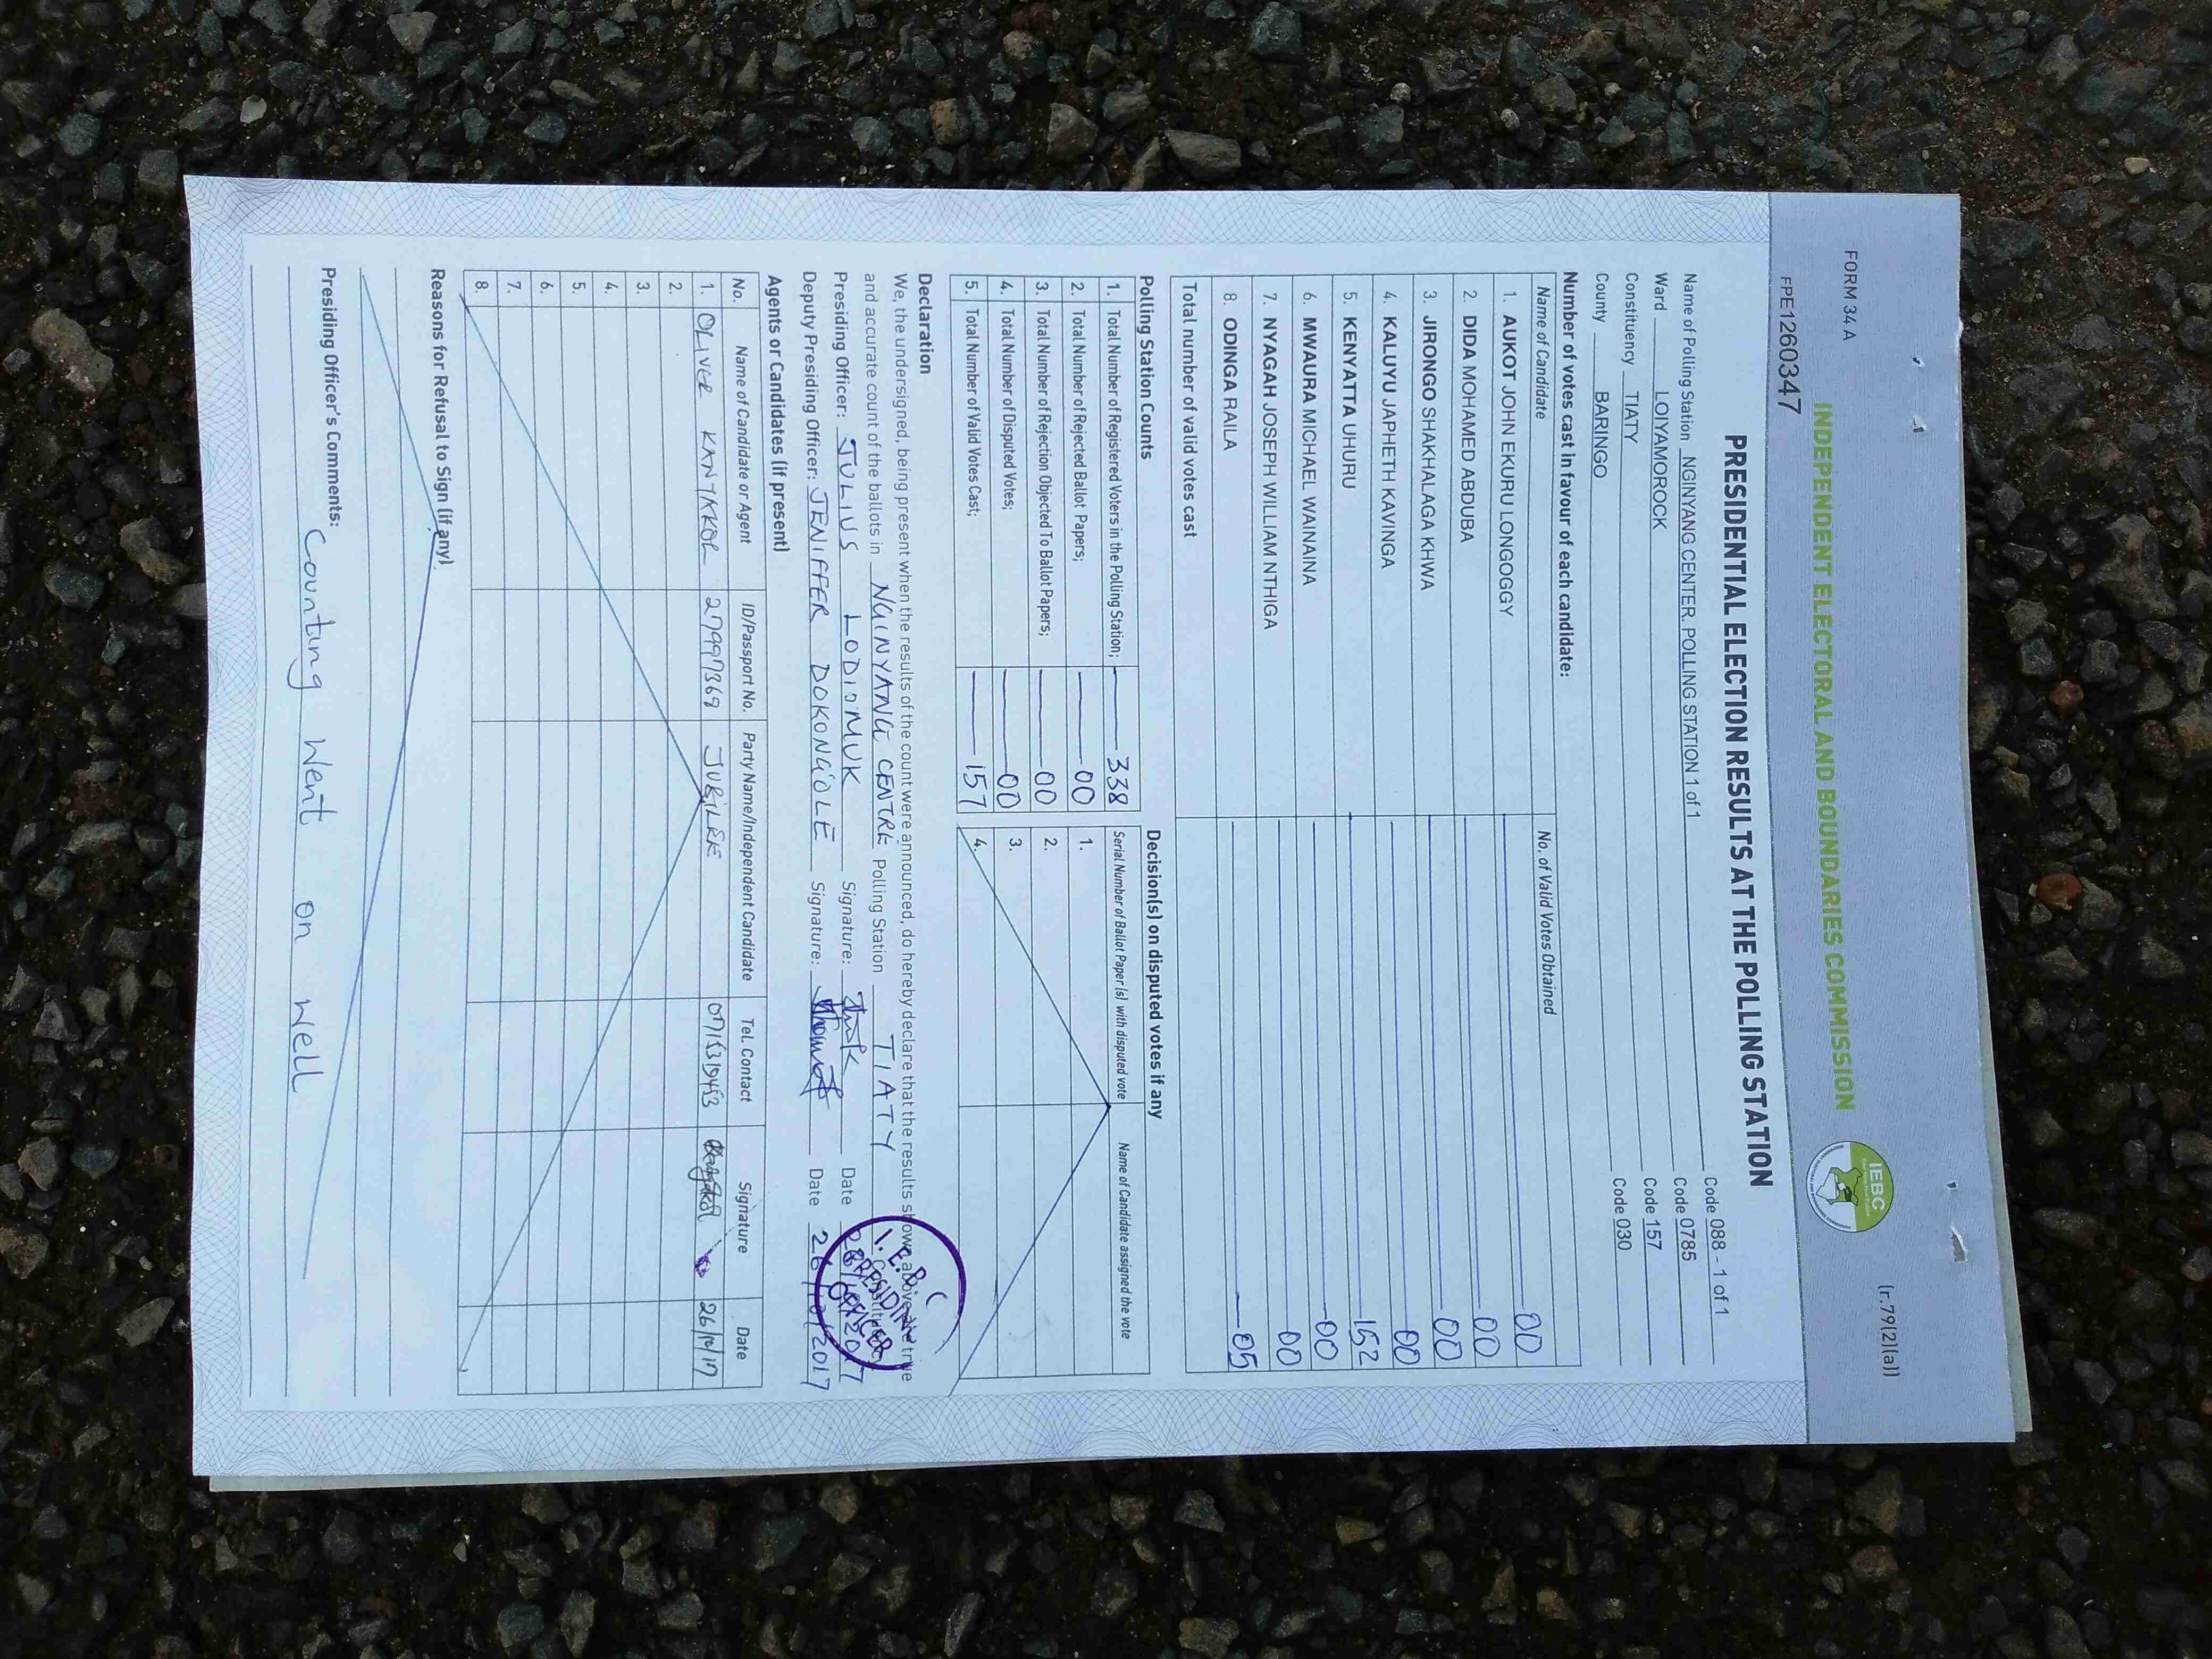 FORM 34 A
(r.79(2)(a))
INDEPENDENT ELECTORAL AND BOUNDARIES COMMISSION
IEBC
FPE1260347
PRESIDENTIAL ELECTION RESULTS AT THE POLLING STATION
Name of Polling Station NGINYANG CENTER. POLLING STATION 1 of 1 Code 088 - 1 of 1
Ward LOIYAMOROCK Code 0785
Constituency TIATY Code 157
County BARINGO Code 030
Number of votes cast in favour of each candidate:
Name of Candidate No. of Valid Votes Obtained
1. AUKOT JOHN EKURU LONGOGGY 00
2. DIDA MOHAMED ABDUBA 00
3. JIRONGO SHAKHALAGA KHWA 00
4. KALUYU JAPHETH KAVINGA 00
5. KENYATTA UHURU 152
6. MWAURA MICHAEL WAINAINA 00
7. NYAGAH JOSEPH WILLIAM NTHIGA 00
8. ODINGA RAILA 05
Total number of valid votes cast
Polling Station Counts Decision(s) on disputed votes if any
Serial Number of Ballot Paper (s) with disputed vote Name of Candidate assigned the vote
1. Total Number of Registered Voters in the Polling Station; 338
2. Total Number of Rejected Ballot Papers; 00 1.
3. Total Number of Rejection Objected To Ballot Papers; 00 2.
4. Total Number of Disputed Votes; 00 3.
5. Total Number of Valid Votes Cast; 157 4.
Declaration
We, the undersigned, being present when the results of the count were announced, do hereby declare that the results shown above are true
and accurate count of the ballots in NGINYANG CENTRE Polling Station TIATY
Presiding Officer: JULIUS LODIOMUK Signature: Date
Deputy Presiding Officer: JENIFFER DOKONGOLE Signature: Date 26/10/2017
I. E. B C
PRESIDING
OFFICER
Agents or Candidates (if present)
No. Name of Candidate or Agent ID/Passport No. Party Name/Independent Candidate Tel. Contact Signature Date
1. OLIVER 27997368 JUBILEE 26/10/17
2.
3.
4.
5.
6.
7.
8.
Reasons for Refusal to Sign (if any)
Presiding Officer's Comments:
Counting went on well